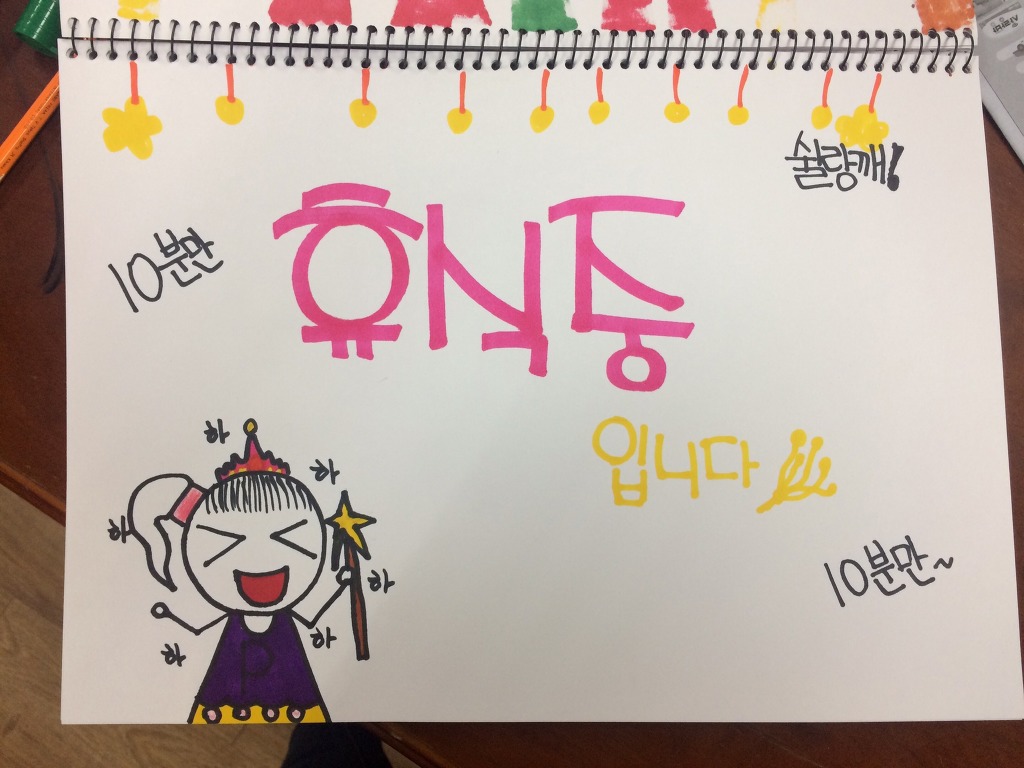 쉴랑깨!
10분만
휴식중
입니다
10분만~
하
하
하
하
하
하
P